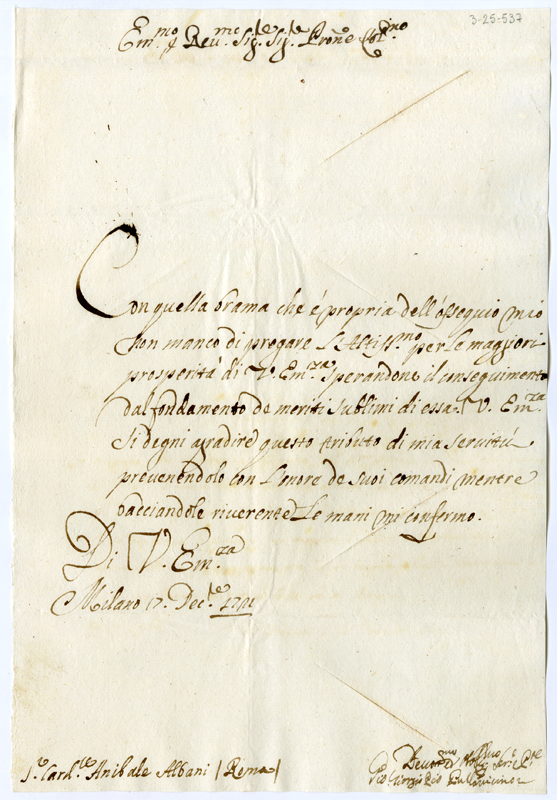 3-25-537
Em.mo e Rev.mo Sig.re Sig.re Prone Col.mo
Con quella brama che è propria dell'ossequio mio
non manco di pregare l'Altiss.mo per le maggiori
prosperità di V. Em.za sperandone il conseguimento
dal fondamento de meriti sublimi di essa. V. Em.za
si degni agradire questo tributo di mia servitù
prevenendolo con l'onore de suoi comandi mentre
bacciandole riverente le mani mi confermo.
Di V. Em.za
Milano 17. Dec.re 1711
S.r Card.le Anibale Albani / Roma /
Pallavicino